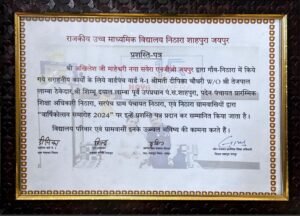 राजकीय उच्च माध्यमिक विद्यालय निठारा शाहपुरा जयपुर
प्रशस्ति-पत्र
श्री अखिलेश जी माहेश्वरी नया सवेरा एनजीओ जयपुर द्वारा गाँव-निठारा में किये
गये सराहनीय कार्यों के लिये वार्डपंच वार्ड नं.-1 श्रीमती दीपिका चौधरी W/O श्री तेजपाल
लाम्बा ठेकेदार, श्री शिम्भू दयाल लाम्बा पूर्व उपप्रधान पं.स.शाहपुरा, पुदेन पंचायत प्रारम्भिक
शिक्षा अधिकारी निठारा, सरपंच ग्राम पंचायत निठारा, एवं निठारा ग्रामवासियों द्वारा
"वार्षिकोत्सव समारोह 2024" पर इन्हें प्रशस्ति पत्र प्रदान कर सम्मानित किया जाता है।
विद्यालय परिवार एवं ग्रामवासी इनके उज्ज्वल भविष्य की कामना करते हैं।
दीपिका